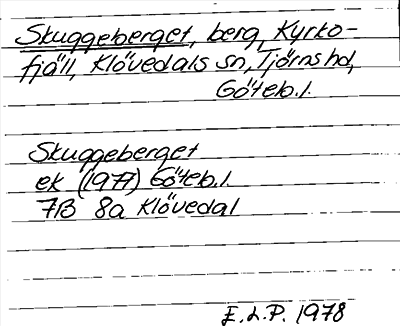 Skuggeberget, berg, Kyrko-
fjäll, Klövedals sn, Tjörns hd,
Göteb.l.
Skuggeberget
ek (1977) Göteb.l.
7B 8a Klövedal
E.L.P. 1978